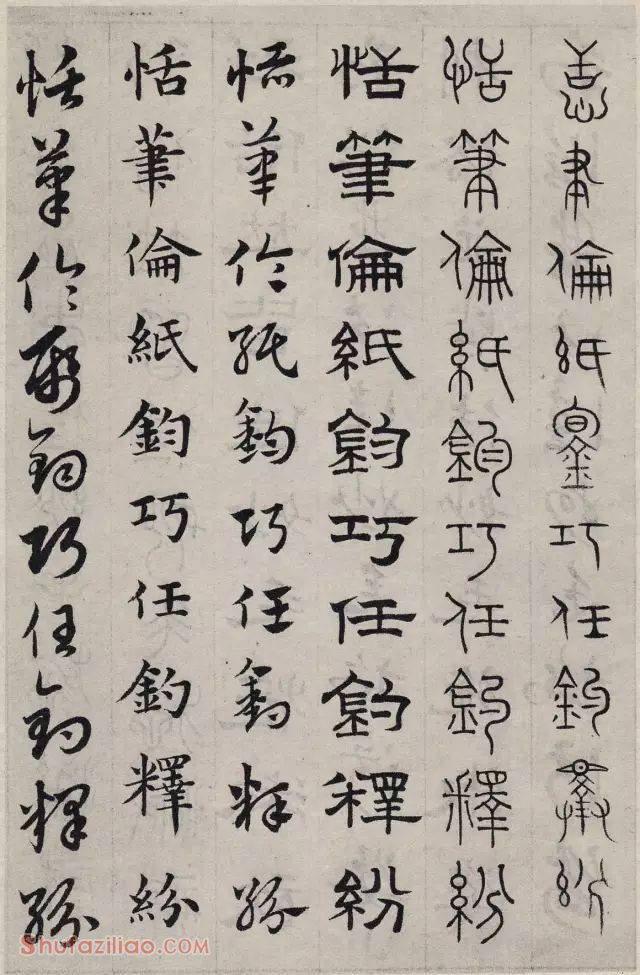 恬筆倫紙鈞巧任釣釋紛
恬筆倫紙鈞巧任釣釋紛
恬筆倫紙鈞巧任釣釋紛
恬筆倫紙鈞巧任釣釋紛
恬筆倫紙鈞巧任釣釋紛
恬筆倫紙鈞巧任釣釋紛
Shufaziliao.COM